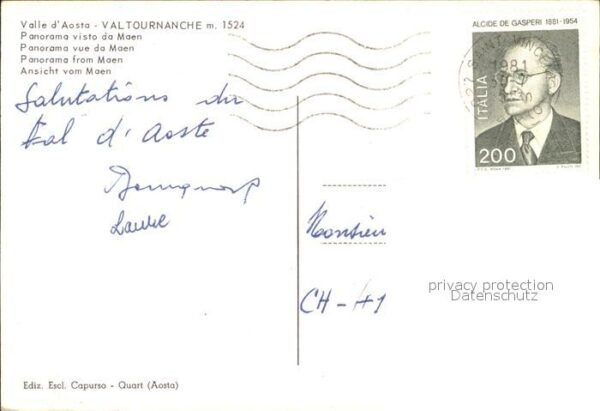 Valle d'Aosta - VALTOURNANCHE m. 1524
Panorama visto da Maen
Panorama vue da Maen
Panorama from Maen
Ansicht vom Maen
ALCIDE DE GASPERI 1881-1954
ITALIA
200
1981
Salutations du
Val d'Aoste
Laure
Monsieur
CH-41
privacy protection
Datenschutz
Ediz. Escl. Capurso - Quart (Aosta)